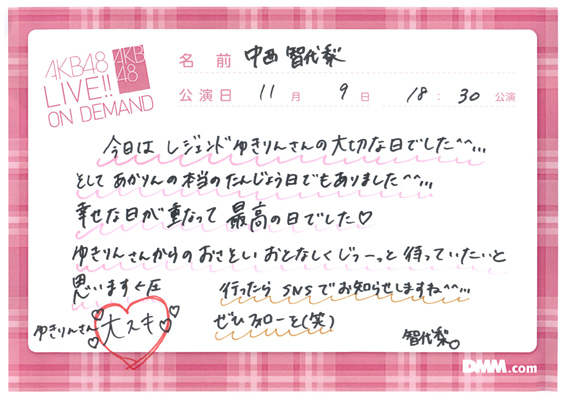 AKB48
LIVE!!
ON DEMAND
AKB
48
名 前 中西 智代梨
公演日 11月 9日 18:30 公演
今日は レジェンドゆきりんさんの大切な日でした^^…
そして あかりんの本当のたんじょう日でもありました^^…
幸せな日が重なって 最高の日でした♡
ゆきりんさんからのおさそい おとなしくじぅーっと 待っていたいと
思います←圧
行ったら SNSでお知らせしますね^^…
ぜひフォローを(笑)
ゆきりんさん 大スキ
智代梨。
DMM.com